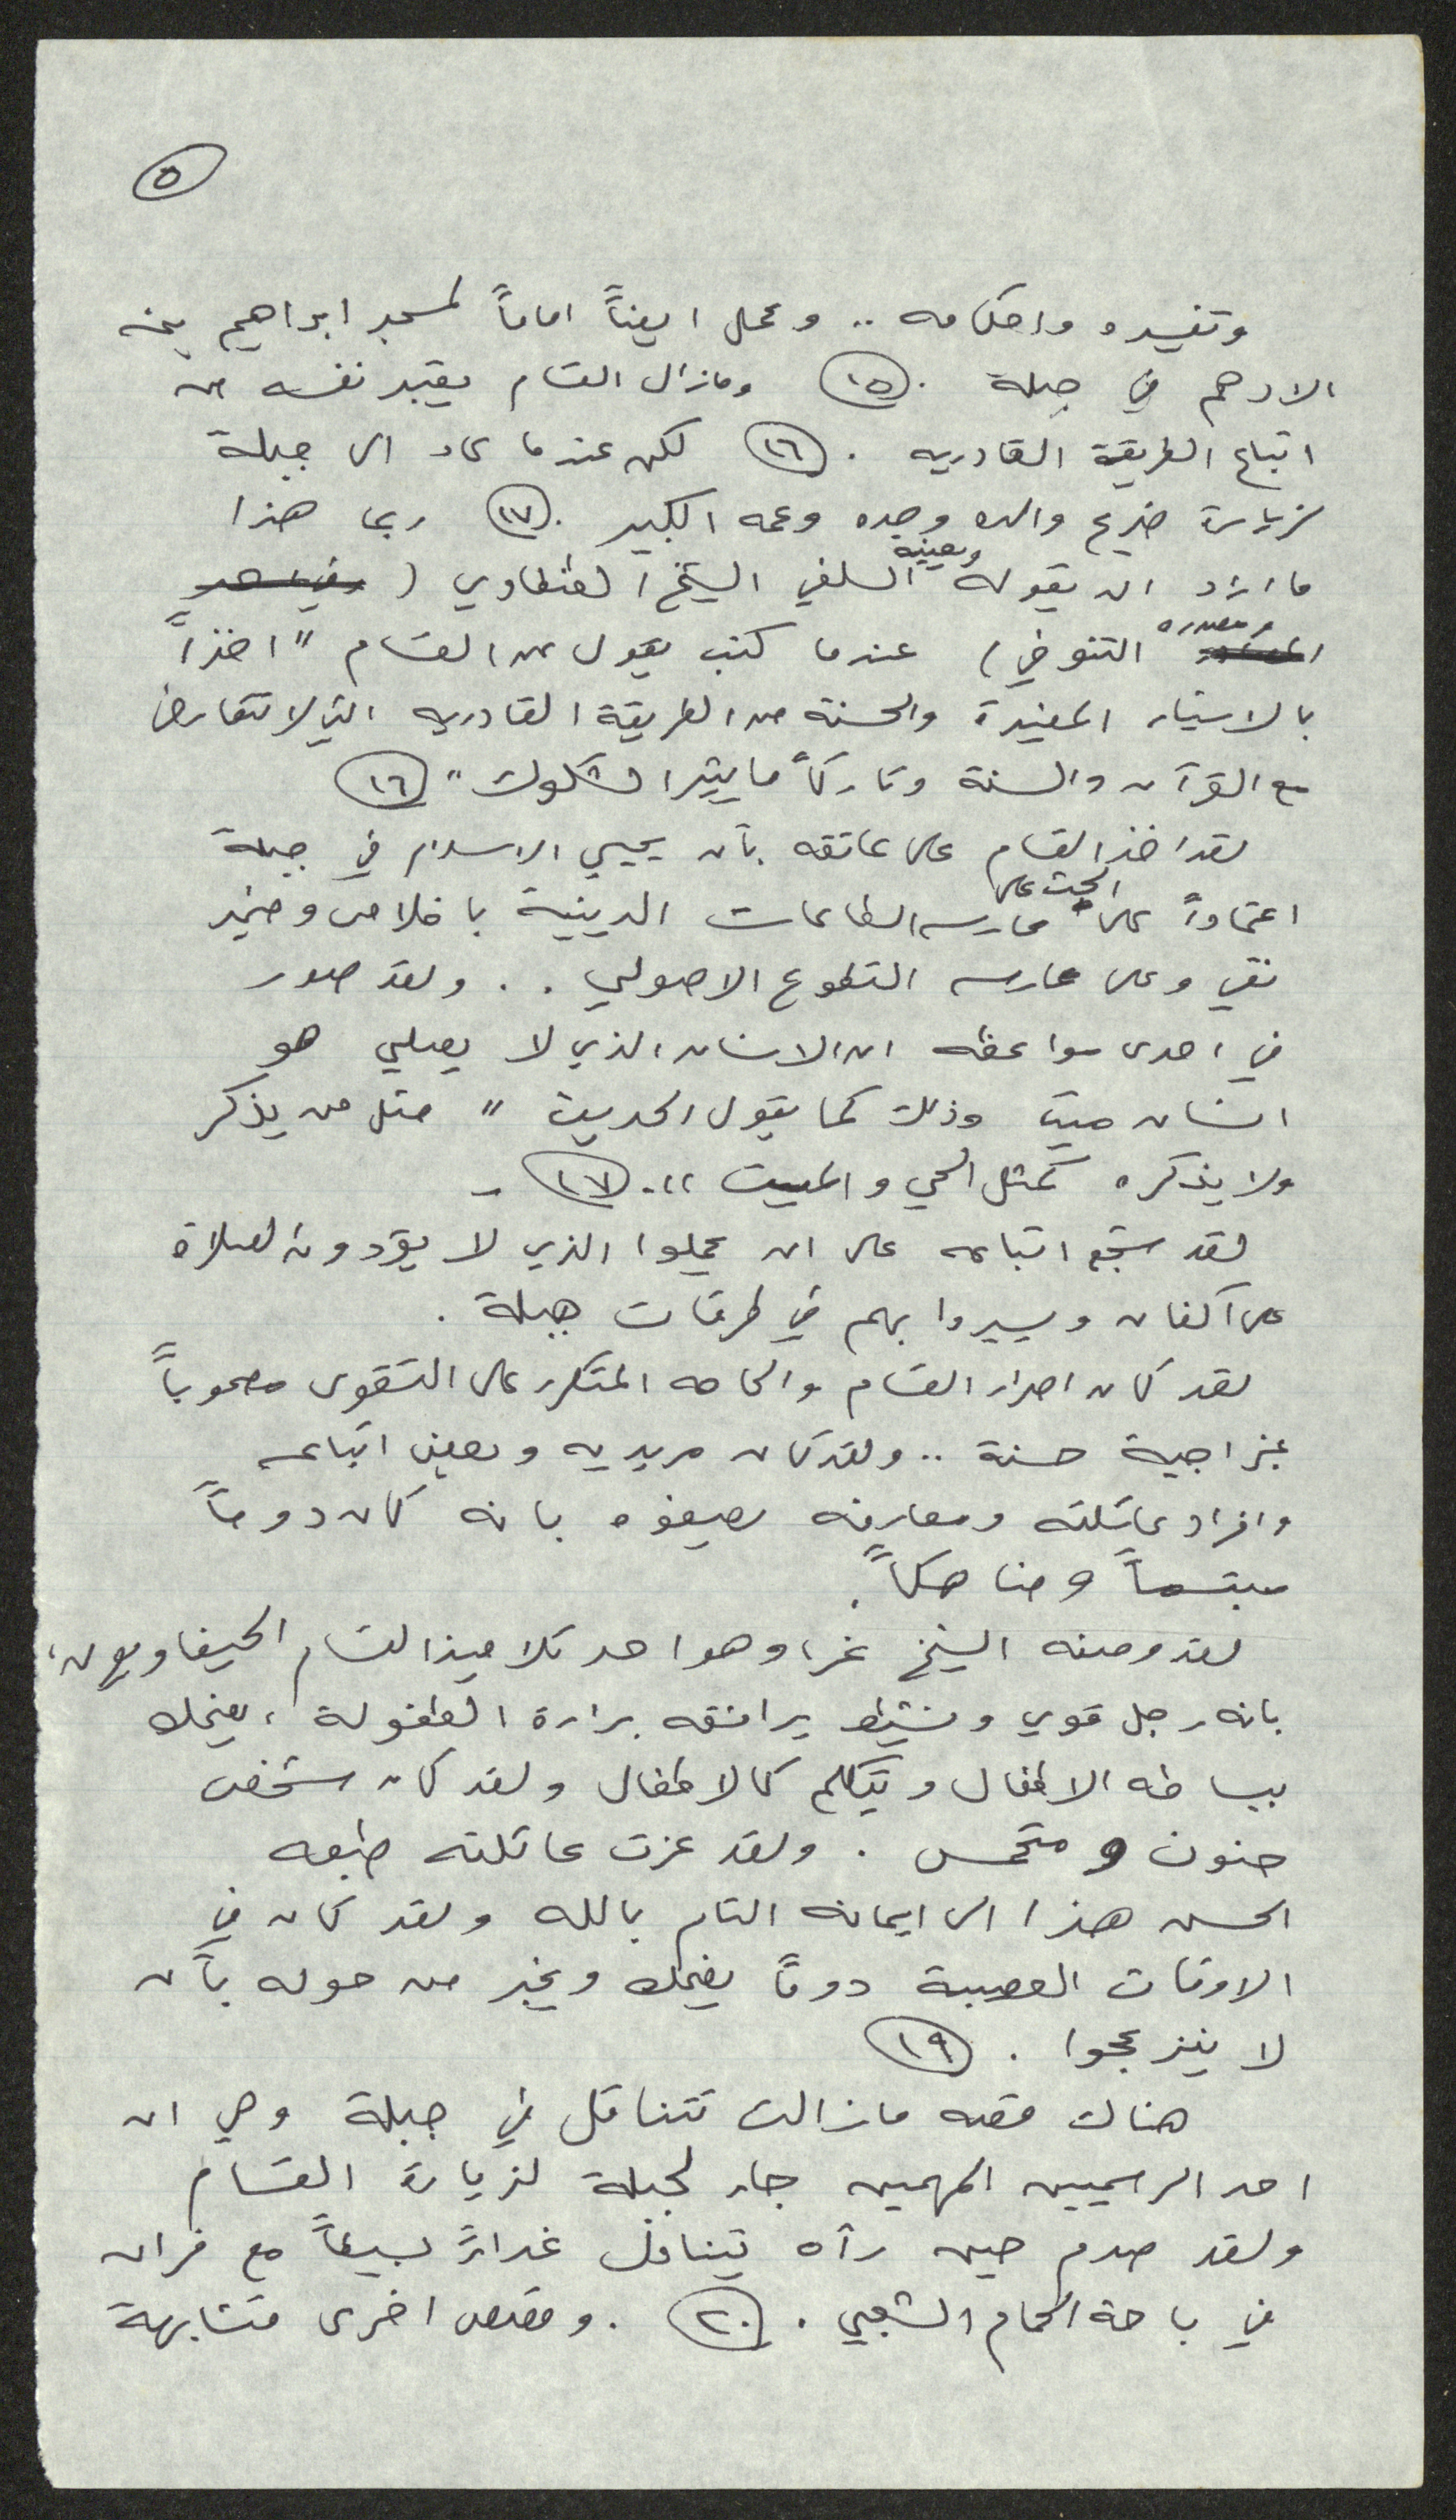 ٥
وتفسيره واحكامه .. وعمل ايضاً اماماً لمسجد ابراهيم بن
الادهم في جبلة . ١٥ ومازال القسام يعتبر نفسه من
اتباع الطريقة القادريه . ١٦ لكن عندما عاد الى جبلة
لزيارة ضريح والده وجده وعمه الكبير . ١٧ ربما هذا
ما اراد ان يقوله السلفي الشيخ الطنطاوي (
ومصدره التنوخي) عندما كتب يقول عن القسام " اخذاً
بالاشياء المفيدة والحسنة من الطريقة القادريه التي لا تتعارض
مع القرآن والسنة وتاركاً ما يثير الشكوك " ١٦
لقد اخذ القسام على عاتقه بأن يحيي الاسلام في جبلة
الحث على
اعتماداً على ممارسه الطاعات الدينية باخلاص وضمير
نقي وعلى ممارسه التطوع الاصولي .. ولقد صور
في احدى مواعظه ان الانسان الذي لا يصلي هو
انسان ميت وذلك كما يقول الحديث " مثل من يذكر
ولا يذكره كمثل الحي والميت " . ١٧ -
لقد شجع اتباعه على ان يحملوا الذي لا يؤدون الصلاة
على اكفان ويسيروا بهم في طرقات جبلة .
لقد كان اصرار القسام والحاحه المتكرر على التقوى مصحوباً
بمزاجية حسنة .. ولقد كان مريديه وبعض اتباعه
وافراد عائلته ومعارفه يصفوه بانه كان دوماً
مبتسماً وضاحكاً .
لقد وصفه الشيخ نمر، وهو احد تلاميذ القسام الحيفاويون،
بانه رجل قوي ونشيط يرافقه براءة الطفولة ، يضحك
ببساطه الاطفال ويتكلم كالاطفال ولقد كان شخص
حنون و متحمس . ولقد عزت عائلته طبعه
الحسن هذا الى ايمانه التام بالله ولقد كان في
الاوقات العصيبة دوماً يضحك ويخبر من حوله بأن
لا ينزعجوا . ١٩
هناك قصه مازالت تتناقل في جبلة وهي ان
احد الرسميين المهمين جاء لجبلة لزيارة القسام
ولقد صدم حين رآه يتناول غداءً بسيطاً مع فران
في باحة الحمام الشعبي . ٢٠ . وقصص اخرى متشابهة